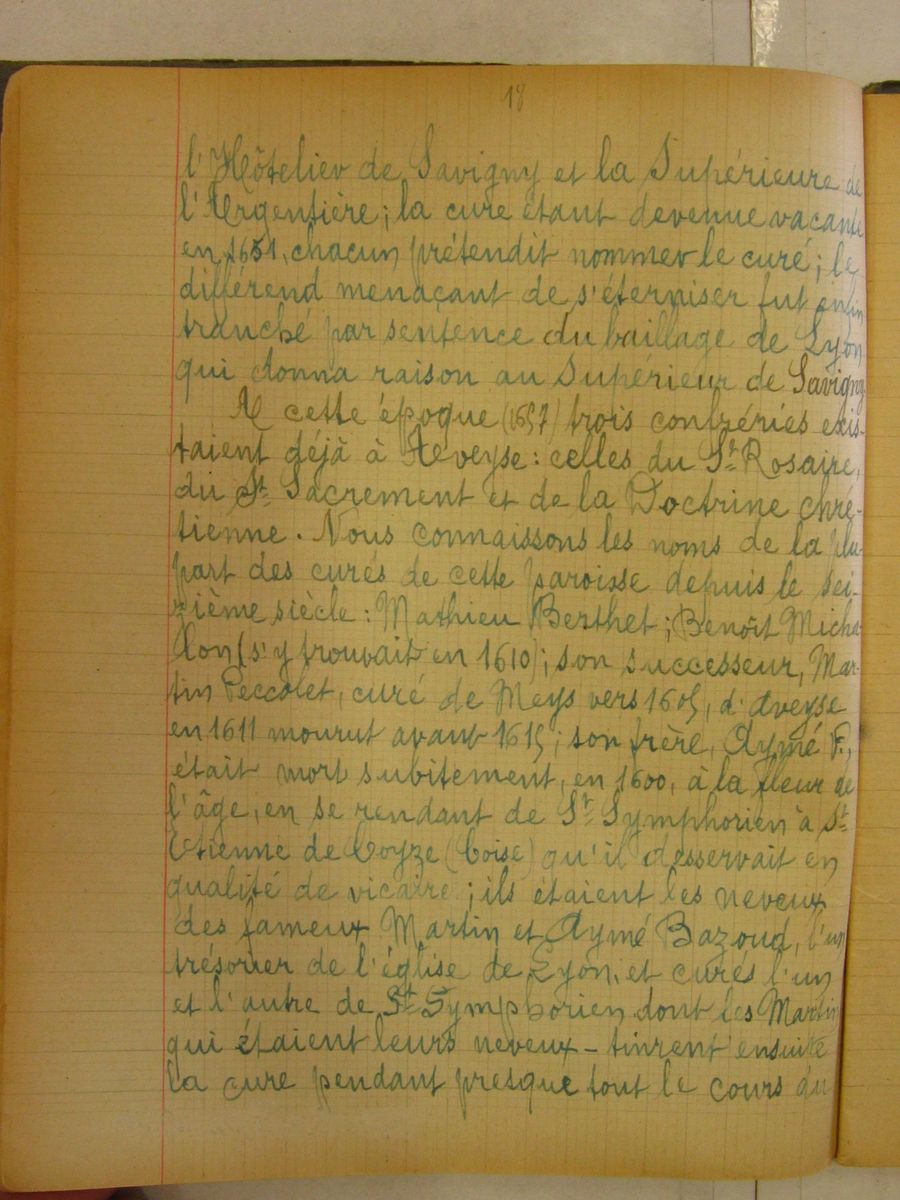 18
l'Hôtelier de Savigny et la Supérieure de
l'Argentière; la cure étant devenue vacante
en 1651, chacun prétendit nommer le curé; le
différend menaçant de s'éterniser fut enfin
tranché par sentence du baillage de Lyon
qui donna raison au Supérieur de Savigny.
A cette époque (1657) trois confréries exis-
taient déjà à Aveyse: celles du St Rosaire,
du St Sacrement et de la Doctrine chré-
tienne. Nous connaissons les noms de la plu-
part des curés de cette paroisse depuis le sei-
zième siècle: Mathieu Berthet; Benoît Micha-
lon (s'y trouvait en 1610); son successeur, Mar-
tin Peccolet, curé de Meys vers 1605, d'Aveyse
en 1611 mourut avant 1615; son frère, Aymé P.,
était mort subitement, en 1600, à la fleur de
l'âge, en se rendant de St Symphorien à St
Etienne de Coyze (Coise) qu'il desservait en
qualité de vicaire; ils étaient les neveux
des fameux Martin et Aymé Bazoud, l'un
trésorier de l'église de Lyon, et curés l'un
et l'autre de St Symphorien dont les Martin
qui étaient leurs neveux - tinrent ensuite
la cure pendant presque tout le cours du